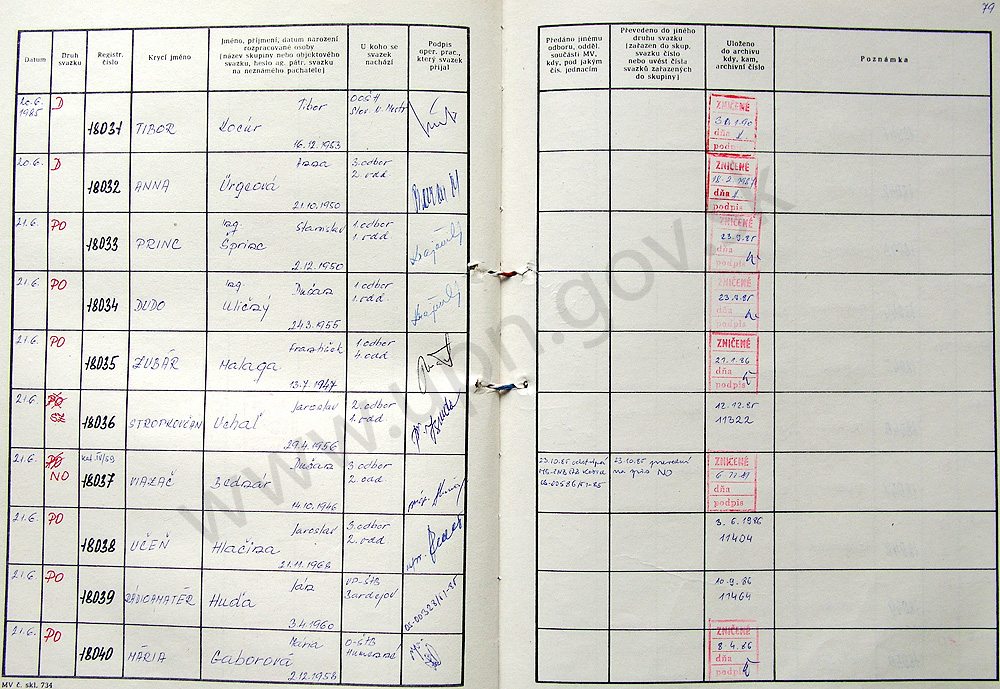 79
Datum
Druh svazku
Registr. číslo
Krycí jméno
Jméno, příjmení, datum narození
rozpracované osoby
(název skupiny nebo objektového
svazku, heslo ag. pátr. svazku
na neznámého pachatele)
U koho se
svazek
nachází
Podpis
oper. prac.,
který svazek
přijal
Předáno jinému
odboru, odděl.
součásti MV,
kdy, pod jakým
čís. jednacím
Převedeno do jiného
druhu svazku
(zařazen do skup.
svazku číslo
nebo uvést čísla
svazků zařazených
do skupiny)
Uloženo
do archivu
kdy, kam,
archivní číslo
Poznámka
20.6. 1985 D 18031 TIBOR Tibor Kocúr 16.12.1953
ZNIČENÉ
dňa
podpis
20.6. D 18032 ANNA Anna Ürgeová 21.10.1950 3.odbor 2.odd
ZNIČENÉ
dňa
podpis
21.6. PO 18033 PRINC Ing. Stanislav Šprinc 2.12.1950 1.odbor 1.odd
ZNIČENÉ 23.9.85
dňa
podpis
21.6. PO 18034 DUDO Ing. Dušan Uličný 24.3.1955 1.odbor 1.odd
ZNIČENÉ 23.9.85
dňa
podpis
21.6. PO 18035 ZUBÁR František Malaga 13.7.1947 1.odbor 4.odd
ZNIČENÉ 21.1.86
dňa
podpis
21.6. PO SZ 18036 STROPKOVČAN Jaroslav Uchaľ 29.4.1956 2.odbor 1.odd
12.12.85
11322
21.6. PO NO 18037 Dušan Bednár 14.10.1946 3.odbor 2.odd
23.10.85
23.10.85 prevedený
na spis NO
ZNIČENÉ
dňa
podpis
21.6. PO 18038 UČEŇ Jaroslav Hlačina 21.11.1968 3.odbor 2.odd
3.6.1986
11404
21.6. PO 18039 RÁDIOAMATÉR Ján Huďa 3.4.1960 Bardejov
10.9.86
11464
21.6. PO 18040 MÁRIA Mária Gáborová 2.12.1956 O-ŠTB Humenné
ZNIČENÉ 8.4.86
dňa
podpis
MV č. skl. 734
www.upn.gov.sk